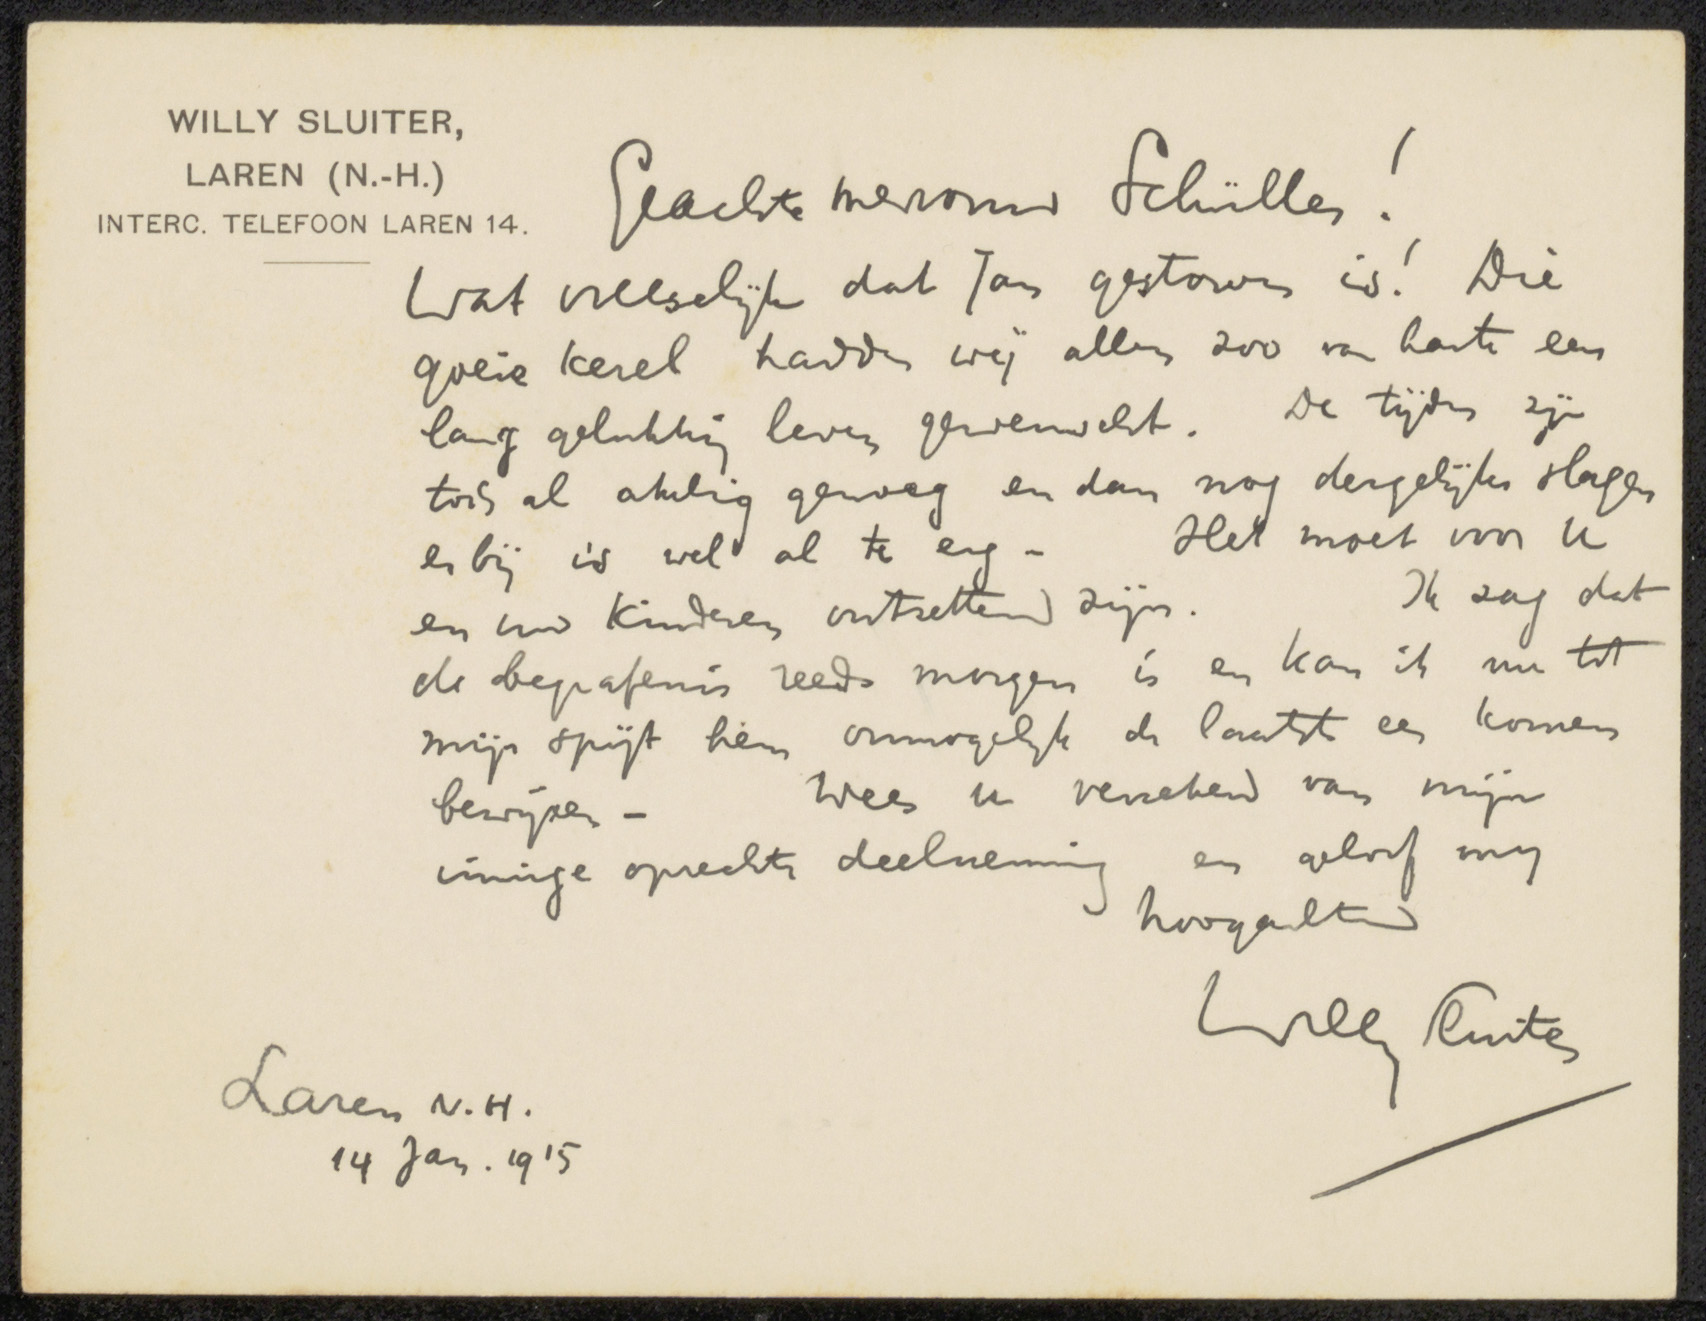 WILLY SLUITER,
LAREN (N.-H.)
INTERC. TELEFOON LAREN 14.
Geachte mevrouw Schüller!
Wat vreeselijk dat Jan gestorven is! Die
goeie kerel hadden wij allen zoo van harte een
lang gelukkig leven gewenscht. De tijden zijn
toch al akelig genoeg en dan nog dergelijke slagen
erbij is wel al te erg -  Het moet voor U
en uw kinderen ontzettend zijn.  Ik zag dat
de begrafenis reeds morgen is en kan ik nu tot
mijn spijt hem onmogelijk de laatste eer komen
bewijzen -  Wees u verzekerd van mijn
innige oprechte deelneming en geloof mij
hoogachtend
Willy Sluiter
Laren N.H.
14 Jan. 1915